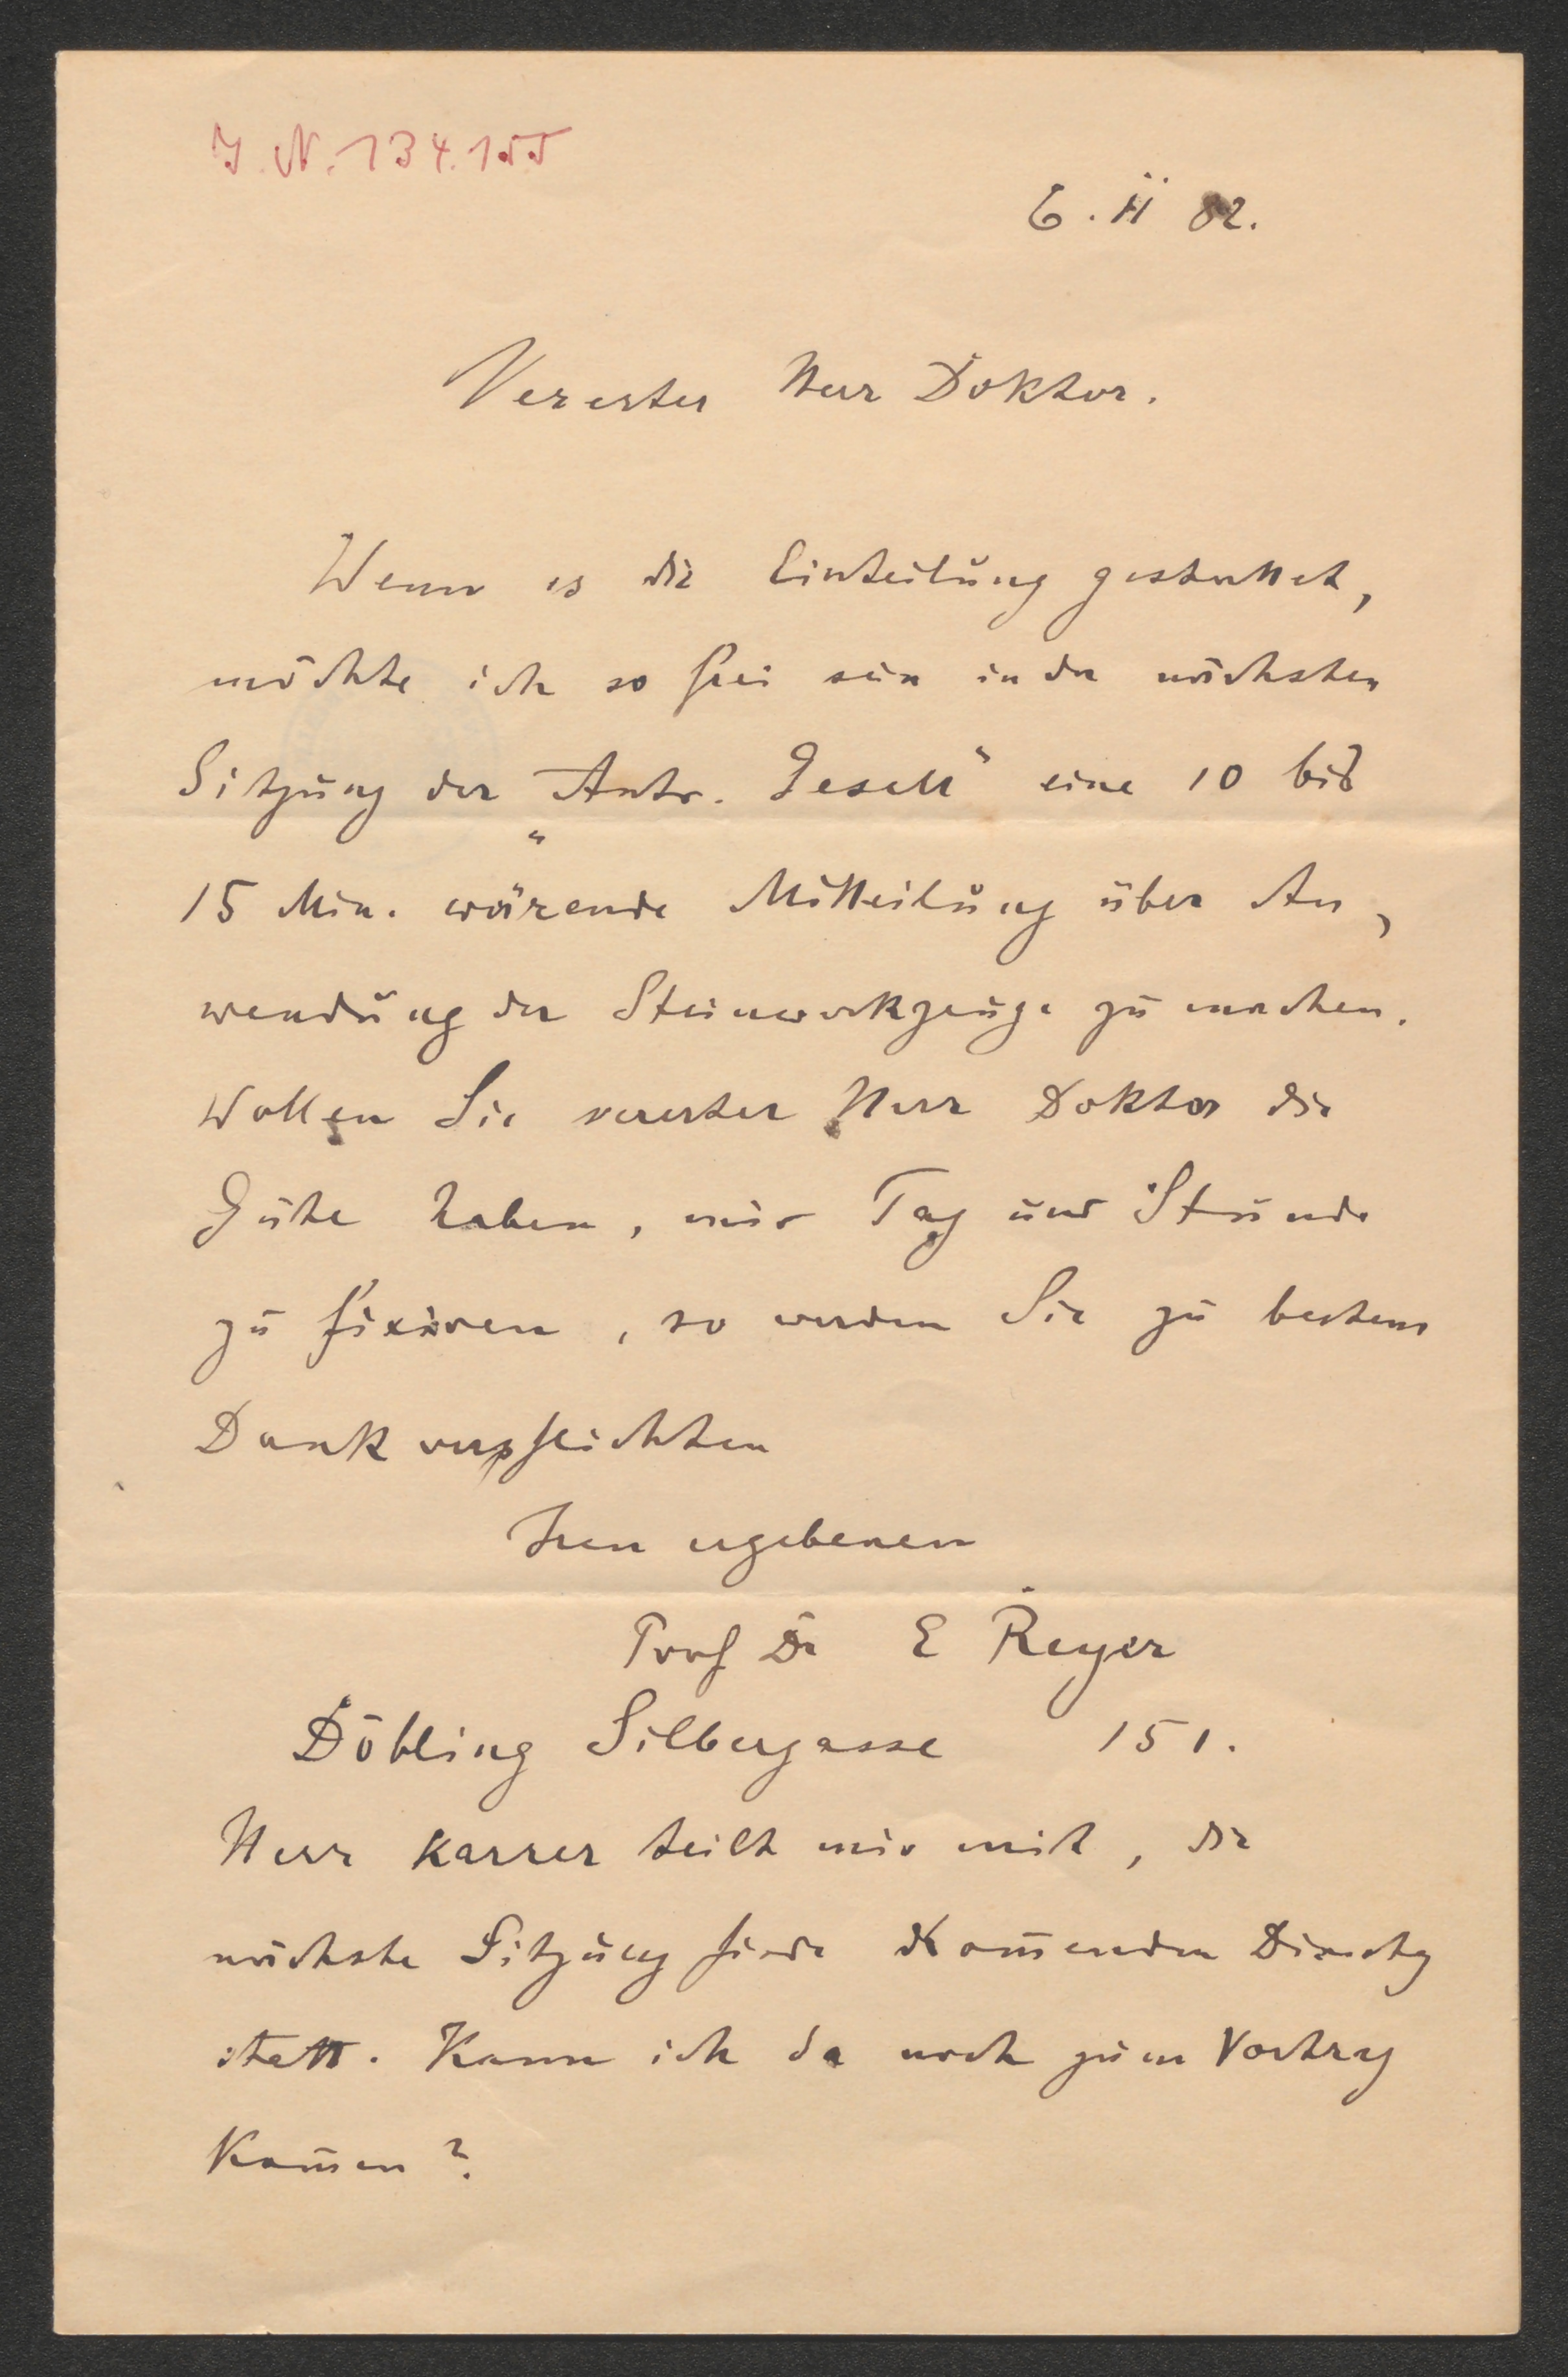 J. N. 134.155
6. II 82.
Vererter Herr Doktor.
Wenn es die Einteilung gestattet,
möchte ich so frei sein in der nächsten
Sitzung der „Antr. Gesell“ eine 10 bis
15 Min. wärende Mitteilung über An-
wendung der Steinwerkzeuge zu machen.
Wollen Sie vererter Herr Doktor die
Güte haben, mir Tag und Stunde
zu fixiren, so werden Sie zu bestem
Dank verpflichten
Iren ergebenen
Prof Dr E Reyer
Döbling Silbergasse 151.
Herr Karrer teilt mir mit, die
nächste Sitzung finde kom̅enden Dienstag
statt. Kann ich da noch zum Vortrag
kom̅en?